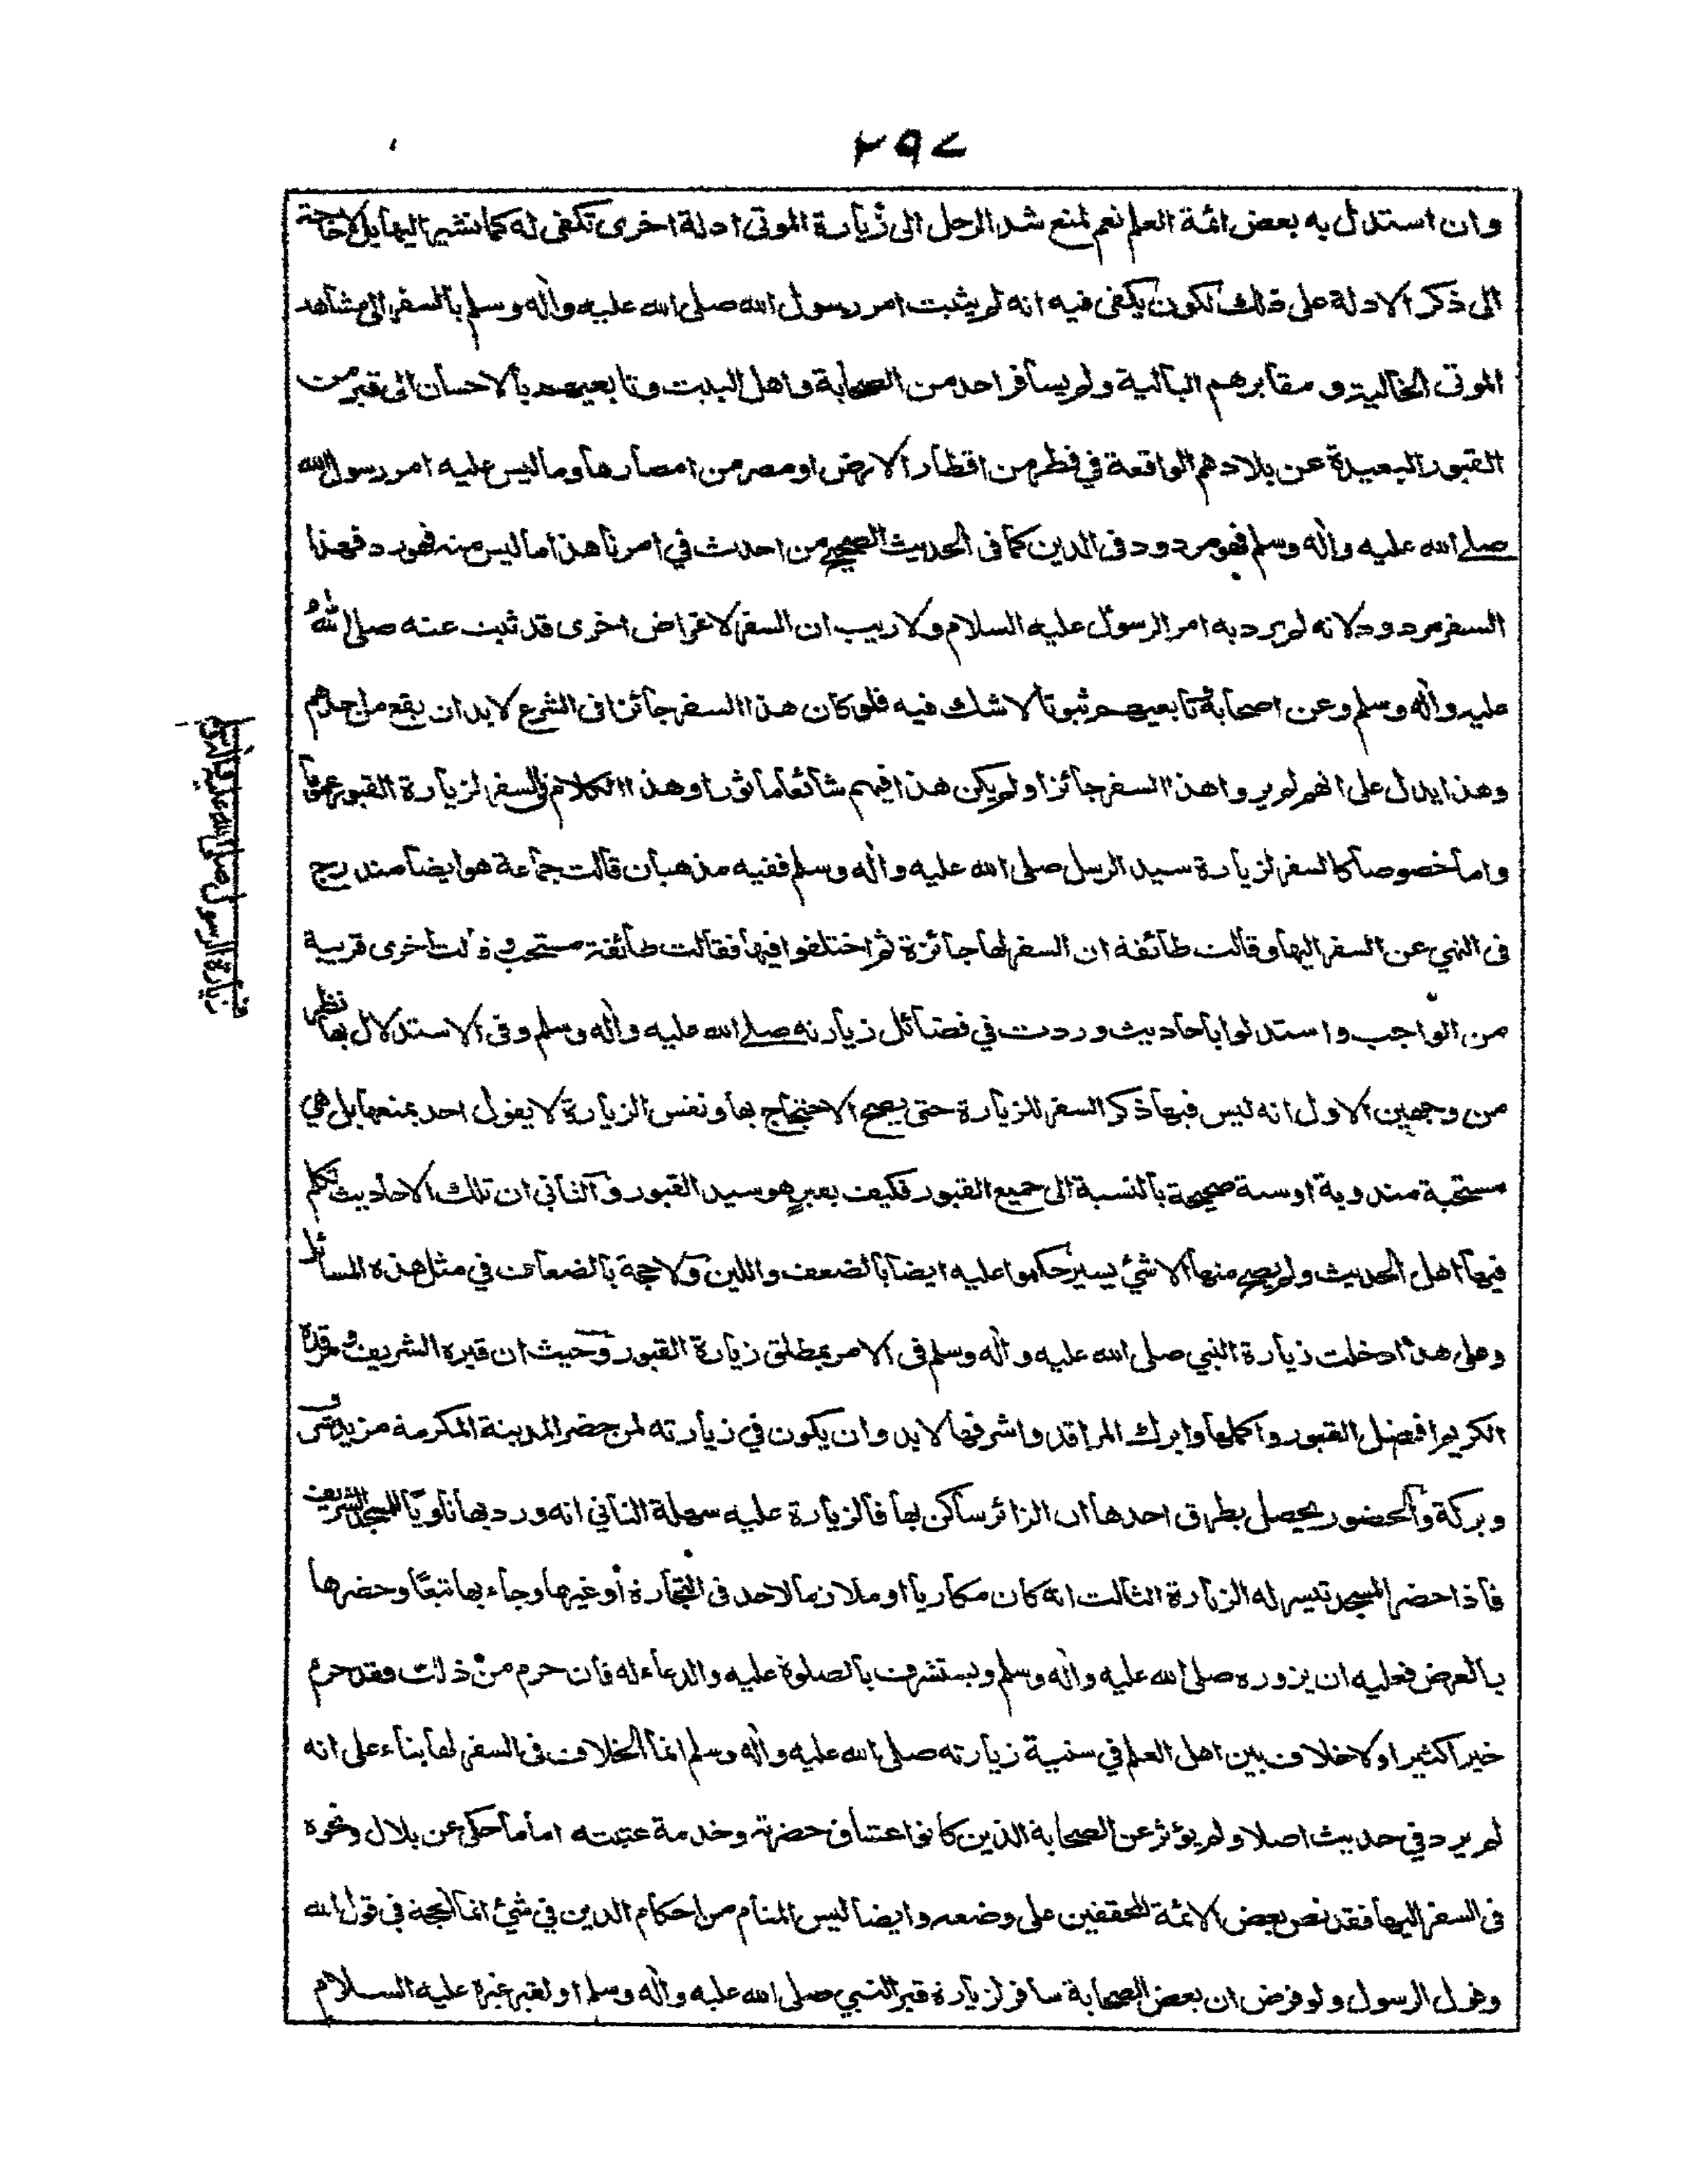 ٢٩٧
وان استدل به بعض ائمة العلم نعم لمنع شد الرحل الى زيارة الموتى ادلة اخرى تكفى له كما نشير اليها بل لا حاجة
الى ذكر الادلة على ذلك لكون يكفى فيه انه لم يثبت امر رسول الله صلى الله عليه واله وسلم بالسفر الى مشاهد
الموتى الخالية و مقابرهم البالية ولم يسافر احد من الصحابة واهل البيت وتابعيهم بالاحسان الى قبر من
القبور البعيدة عن بلادهم الواقعة في قطر من اقطار الارض او مصر من امصارها وما ليس عليه امر رسول الله
صلى الله عليه واله وسلم فهو مردود فى الدين كما فى الحديث الصحيح من احدث في امرنا هذا ما ليس منه فهو رد فهذا
السفر مردود لانه لم يرد به امر الرسول عليه السلام ولا ريب ان السفر لاغراض اخرى قد ثبت عنه صلى الله
عليه واله وسلم وعن اصحابة تابعيهم ثبوتا لا شك فيه فلو كان هذا السفر جائزا فى الشرع لابد ان يقع من احدهم
وهذا يدل على انهم لم يروا هذا السفر جائزا ولم يكن هذا فيهم شائعا ماثورا وهذا الكلام فى السفر لزيارة القبور عموما
واما خصوصا كالسفر لزيارة سيد الرسل صلى الله عليه واله وسلم ففيه مذهبان قالت جماعة هو ايضا مندرج
فى النهي عن السفر اليها وقالت طائفة ان السفر لها جائزة ثم اختلفوا فيها فقالت طائفة مستحب و ذلت اخرى قريبة
من الواجب واستدلوا باحاديث وردت في فضائل زيارته صلى الله عليه واله وسلم وفى الاستدلال بها نظر
من وجهين الاول انه ليس فيها ذكر السفر للزيارة حتى يصح الاحتجاج بها ونفس الزيارة لا يقول احد بمنعها بل هي
مستحبة مندوبة او سنة صحيحة بالنسبة الى جميع القبور فكيف بقبر هو سيد القبور والثاني ان تلك الاحاديث تكلم
فيها اهل الحديث ولم يصح منها الا شئ يسير حكموا عليه ايضا بالضعف واللين ولا حجة بالضعاف في مثل هذه المسائل
وعلى هذا ادخلت زيارة النبي صلى الله عليه و اله وسلم فى الامر بمطلق زيارة القبور وحيث ان قبره الشريف و مرقده
الكريم افضل القبور و اكملها وابرك المراقد واشرفها لابد وان يكون في زيارته لمن حضر المدينة المكرمة مزيد شرف
وبركة والحضور يحصل بطرق احدها ان الزائر ساكن بها فالزيارة عليه سهلة الثاني انه ورد بها ناويا للمسجد الشريف
فاذا حضر المسجد تيسر له الزيارة الثالث انه كان مكاريا او ملازما لاحد فى التجارة أو غيرها وجاء بها تبعًا وحضرها
بالعرض فعليه ان يزوره صلى الله عليه واله وسلم ويستشرف بالصلوة عليه والدعاء له فان حرم من ذلك فقد حرم
خيرا كثيرا ولا خلاف بين اهل العلم في سنية زيارته صلى الله عليه واله وسلم انما الخلاف فى السفر لها بناء على انه
لم يرد في حديث اصلا ولم يؤثر عن الصحابة الذين كانوا عشاق حضرته وخدمة عتبته اما ما حكى عن بلال ونحوه
فى السفر اليها فقد نص بعض الائمة المحققين على وضعه وايضا ليس المنام من احكام الدين في شئ انما الحجة في قول الله
وقول الرسول ولو فرض ان بعض الصحابة سافر لزيارة قبر النبي صلى الله عليه واله وسلم او لقبر غيره عليه السلام
زيارة الرسول صلى الله عليه